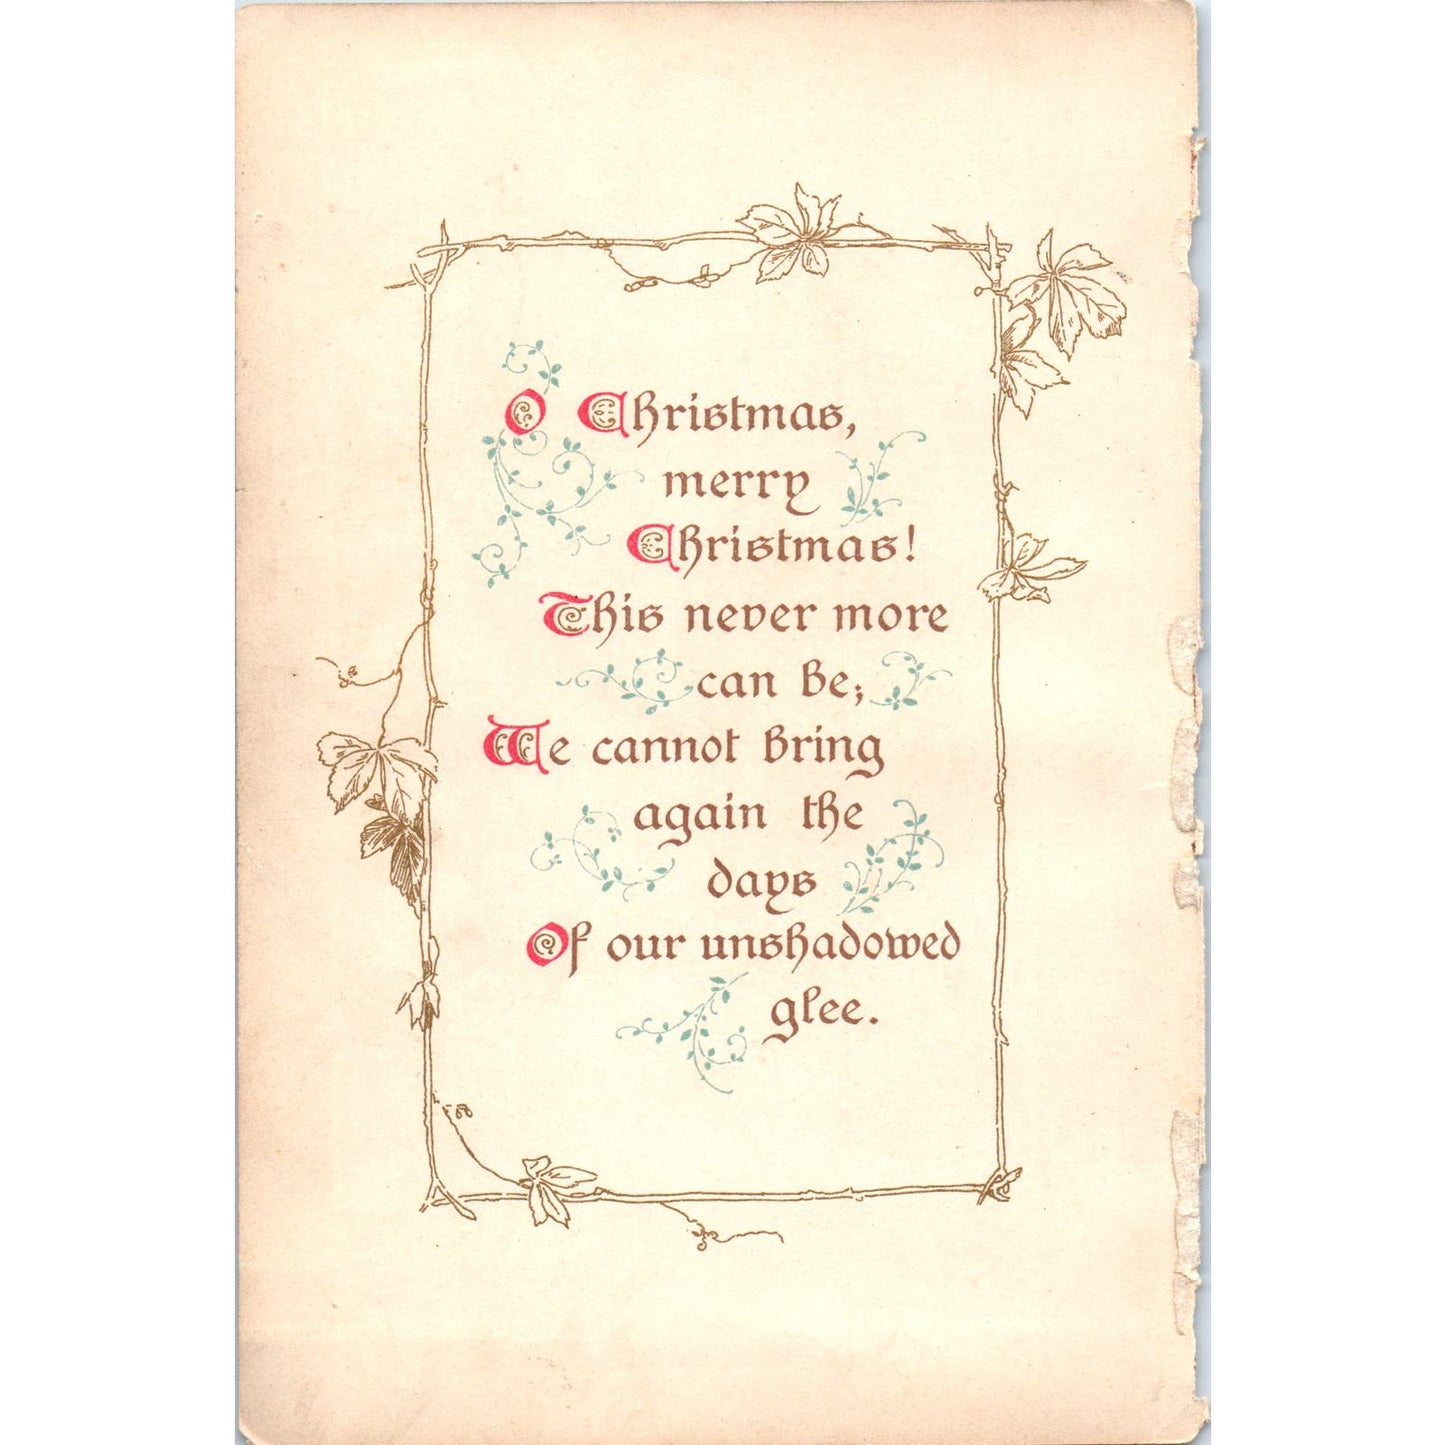 O Christmas,
merry
Christmas!
This never more
can be;
We cannot bring
again the
days
Of our unshadowed
glee.